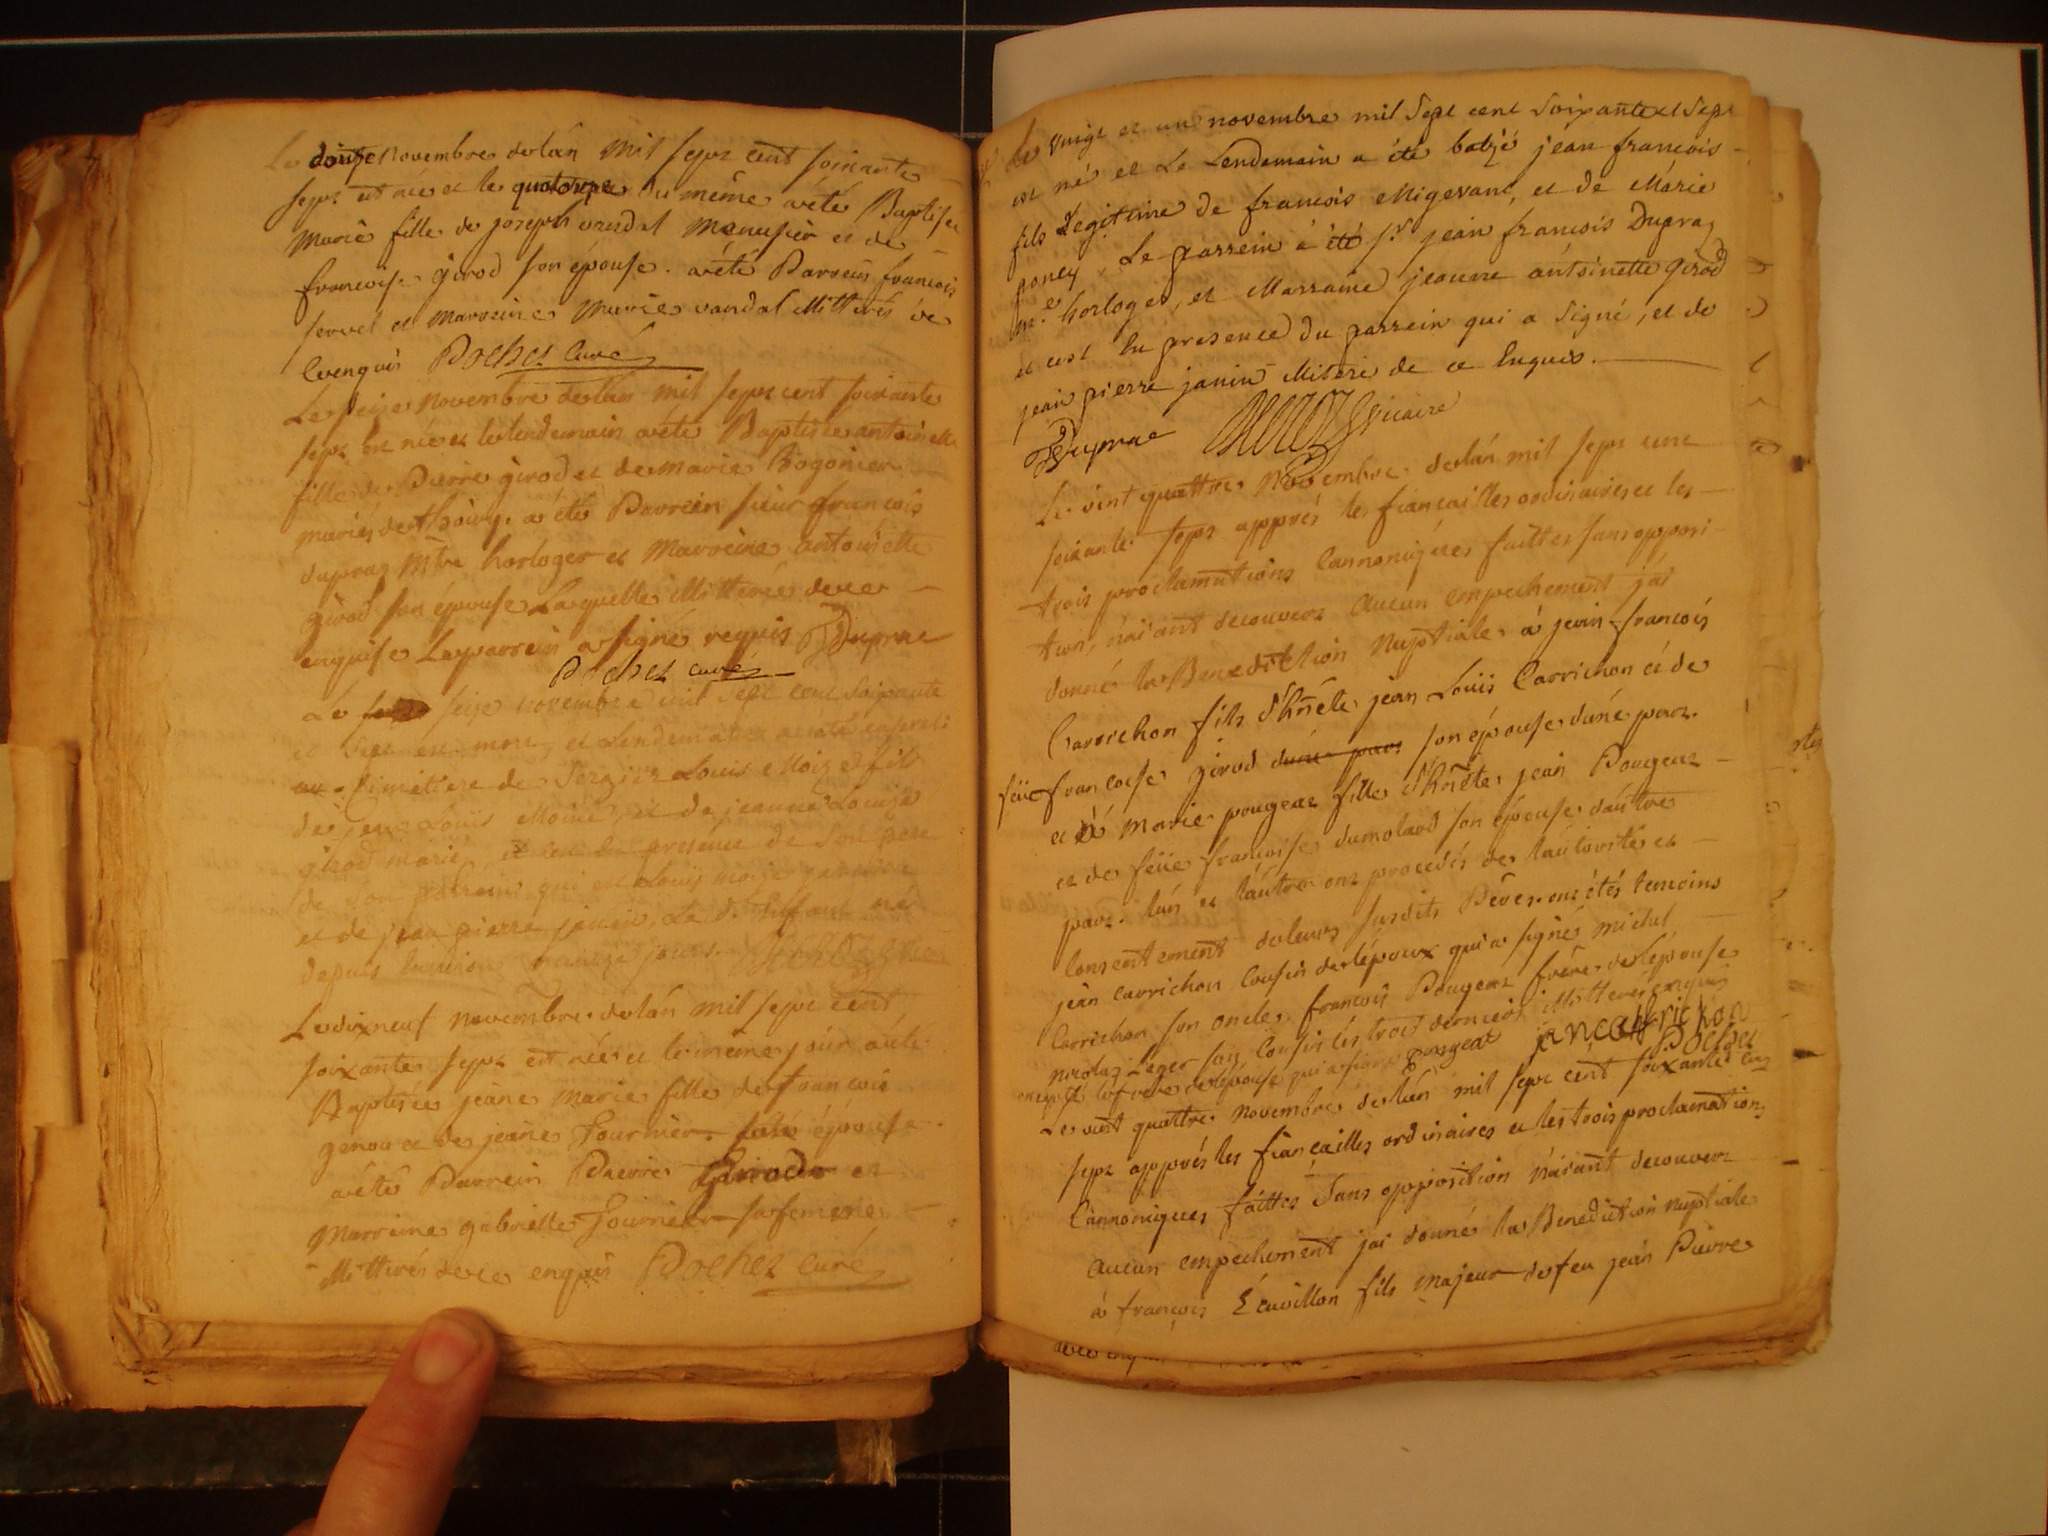 Le douze novembre de lán mil sept cent soixante
sept est née et le quatorze du même a été Baptisée
Marie fille de joseph vandal Menusier et de
francoise girod son épouse. a été Parrein francois
servet et Marreine Marie vandal illitterés de
ce enquis Pochet Curé
Le seize novembre de lán mil sept cent soixante
sept est née et le lendemain a été Baptisée antoinette
fille de Pierre girod et de Marie
mariés de thoiry. a été Parrein sieur francois
dupraz Mtre horloger et Marreine antoinette
girod son épouse Laquelle illitterée de ce
enquise Le parrein a signé requis Duprae
Pochet curé
Le seize novembre mil sept cent soixante
et sept est mort, et Lendemain a été
au Cimetiere de Sergiiz Louis Moize fils
de jean Louis Moine, et de jeanne Louise
girod mariés, et ce en presence de son pere
de son parrein qui est Louis
et de jean pierre janin. Le
depuis environ jours.
Le dixneuf novembre de lán mil sept cent
soixante sept est née et le même jour a été
Baptisée jeane Marie fille de francois
genou et de jeane fournier son épouse.
a été Parrein Pierre Girod et
Marreine gabrielle fournier sa femme
illitterés de ce enquis Pochet Curé
Le vingt et un novembre mil sept cent soixante et sept
est né et Le Lendemain a été batizé jean francois
fils Legitime de francois Migevant, et de Marie
poncy. Le parrein a été Sr jean francois Dupraz
me horloger, et Marraine jeanne antoinette girod
et cest En presence du parrein qui a signé, et de
jean pierre janin illitere de ce Enquis.
Duprae vicaire
Le vint quattre Novembre de lán mil sept cent
soixante sept apprés les fiancailles ordinaires et les
trois proclamations Cannoniques faittes sans opposi-
tion, n'aiant decouvert aucun empechement jái
donné la Benediction Nuptiale á jean francois
Carrichon fils d'hnéte jean Louis Carrichon et de
feüe francoise girod dune part son épouse dúne part.
et á Marie pougeat fille d'hnéte jean Pougeat
et de feüe francoise dumolard son épouse dáutre
part. lún et láutre ont procedés de láutorité et
consentement de leurs susdits Péres. ont étés temoins
jean carrichon Cousin de lépoux qui a signé michel
Carrichon son oncle, francois Pougeat frère de lépouse
nicolaz Leger son cousin les trois derniers illitterés enquis
excepté le frere de lépouse qui a signé pougeat jan carrichon
Pochet
Le vint quattre Novembre de lán mil sept cent soixante
sept apprés les fiançailles ordinaires et les trois proclamations
Cannoniques faittes sans opposition n'aiant decouvert
aucun empechement jai donné la Benediction Nuptiale
á françois Ecuvillon fils majeur de feu jean Pierre